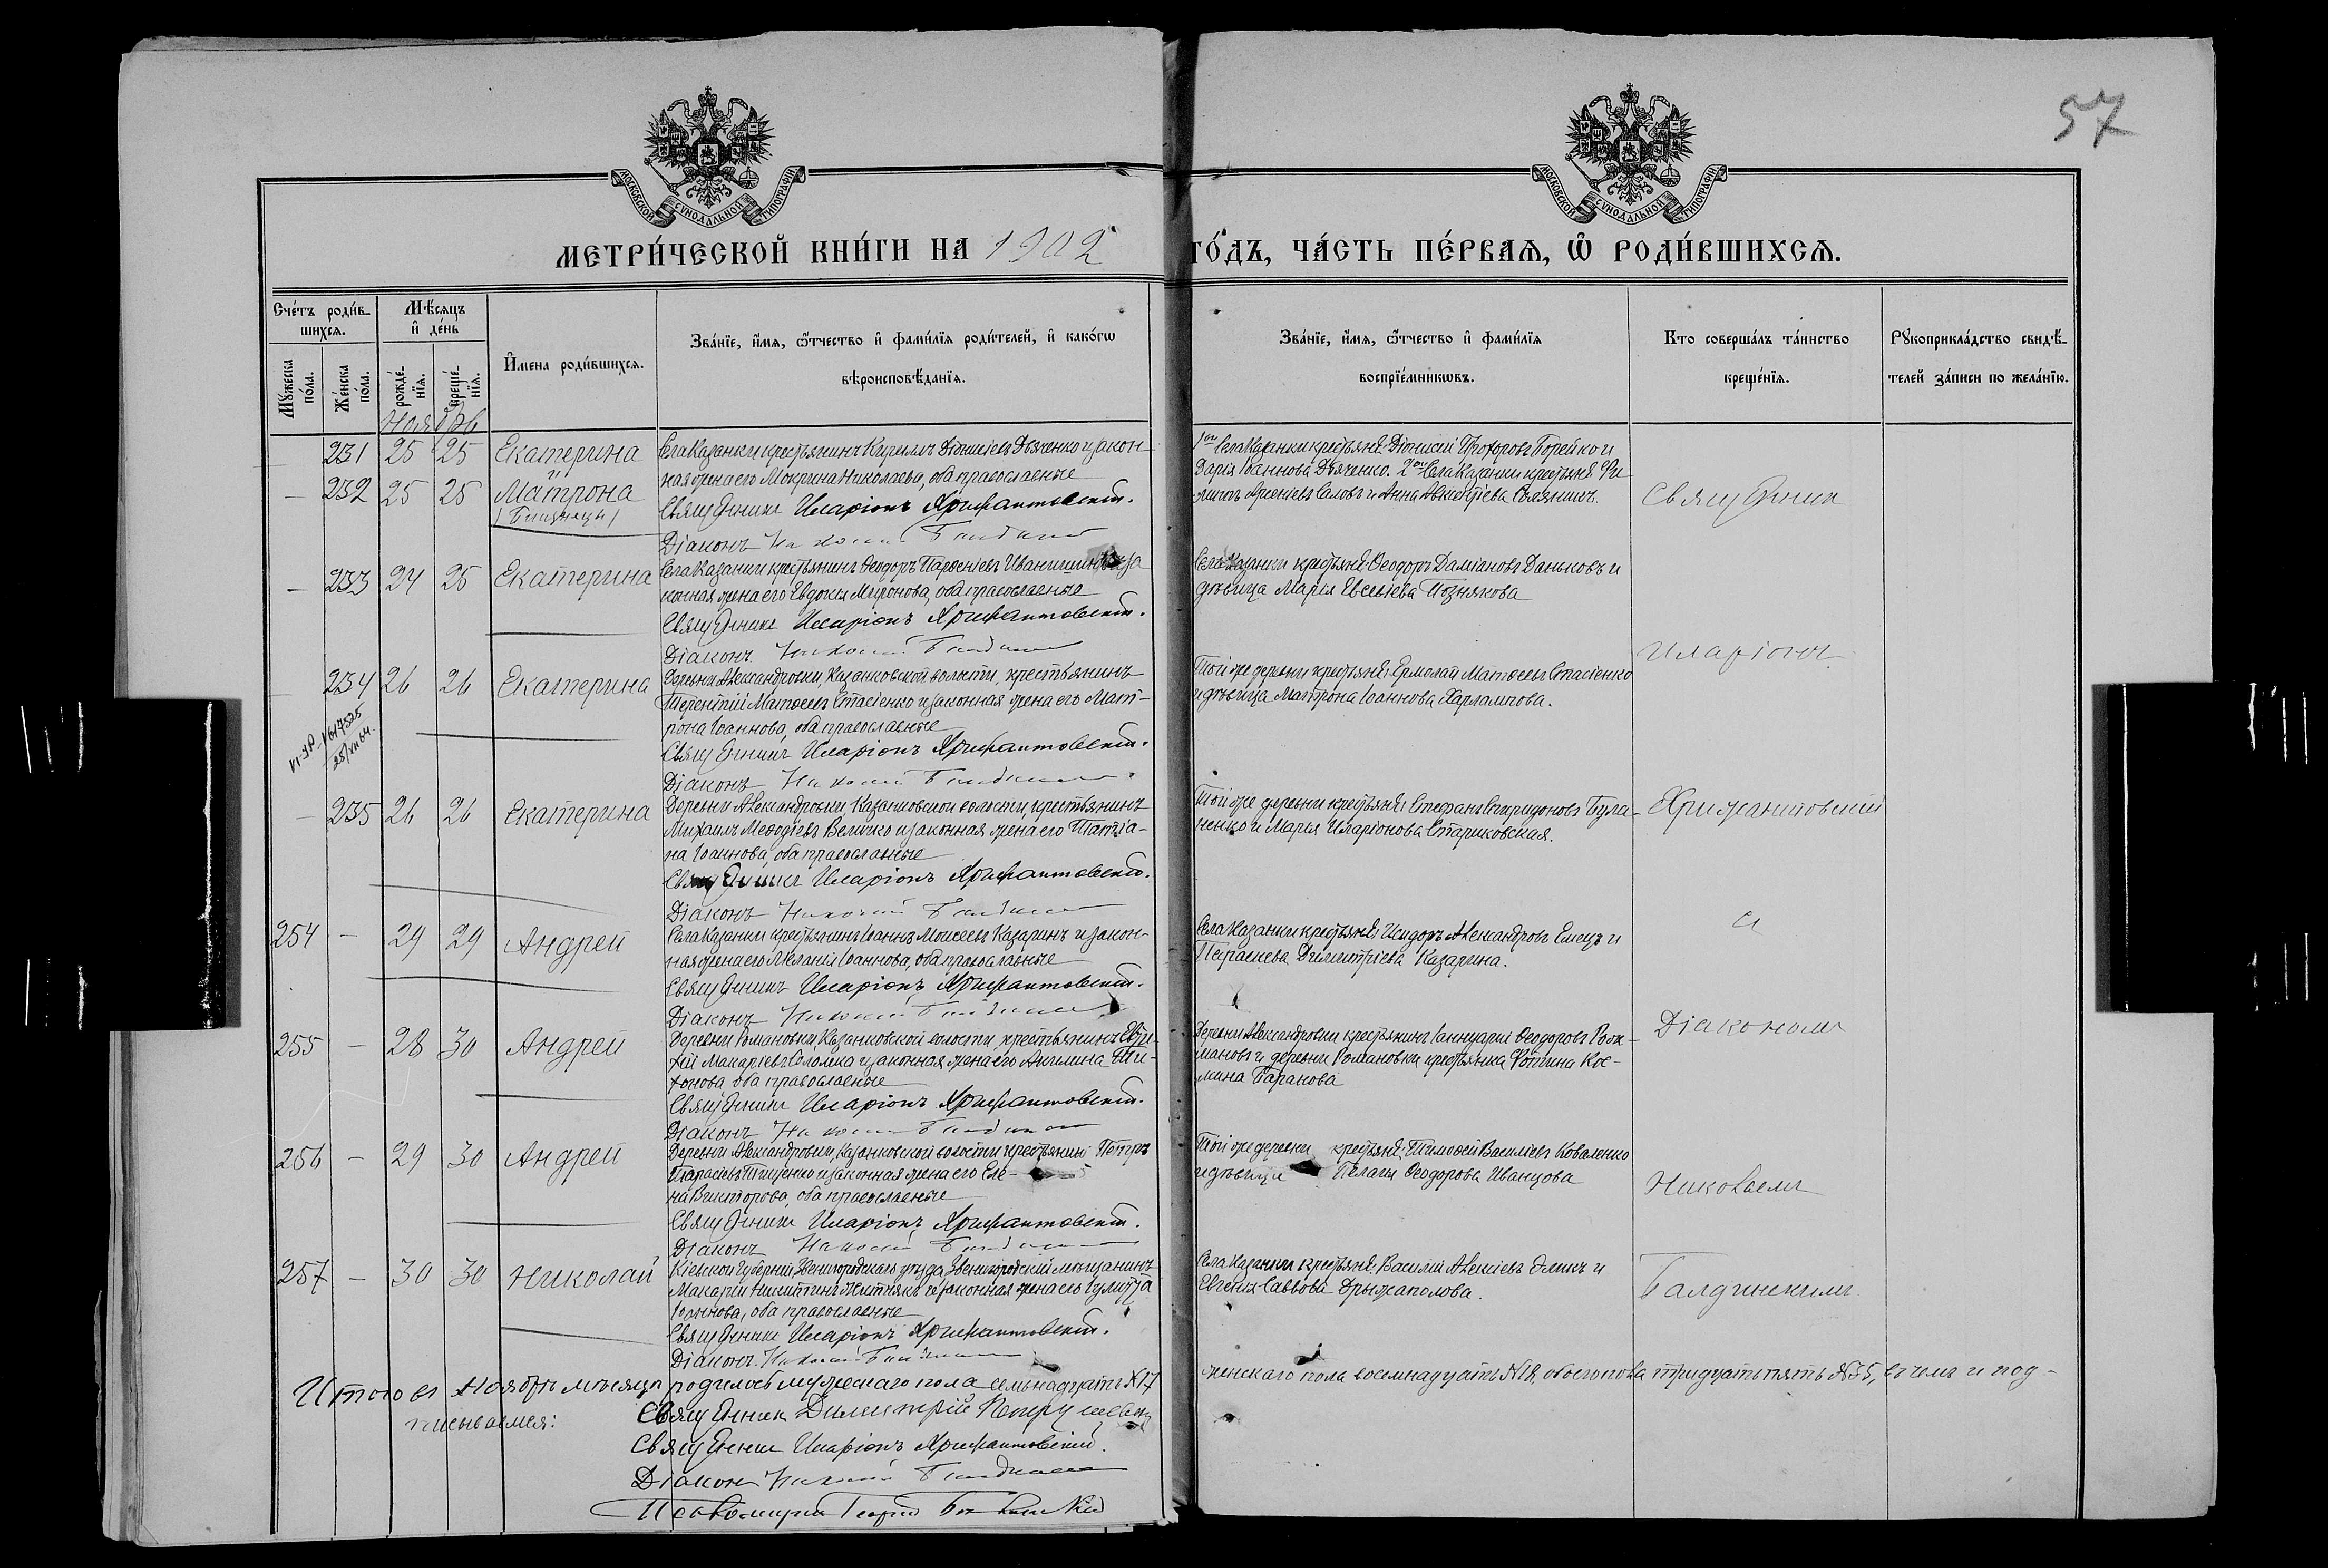 57
МОСКОВСКОЙ СѴНОДАЛЬНОЙ ТИПОГРАФІИ
МОСКОВСКОЙ СѴНОДАЛЬНОЙ ТИПОГРАФІИ
МЕТРИ́ЧЕСКОЙ КНИ́ГИ НА 1902
ГО́ДЪ, ЧА́СТЬ ПЕ́РВАѦ, Ѡ҆ РОДИ́ВШИХСѦ.
Сче́тъ роди́в-
шихсѧ.
Мѣ́сѧцъ
и҆ де́нь
Мꙋ́жеска по́ла.
Же́нска по́ла.
рожде́-
нїѧ.
креще́-
нїѧ.
И҆мена роди́вшихсѧ.
Зва́нїе, и҆́мѧ, ѻ҆́тчество и҆ фами́лїѧ роди́телей, и҆ како́гѡ
вѣроисповѣ́данїѧ.
Зва́нїе, и҆́мѧ, ѻ҆́тчество и҆ фами́лїѧ
воспрїе́мникѡвъ.
Кто соверша́лъ та́инство
креще́нїѧ.
Рꙋкоприкла́дство свидѣ́-
телей за́писи по жела́нїю.
Ноябрь
231 25 25 Екатерина
и
232 25 25 Матрона
(Близнецы)
Села Казанки крестьянинъ Кириллъ Діонисіевъ Дьяченко и закон-
ная жена его Мокрина Николаева, оба православные
Священникъ Иларіонъ Хрисантовскій.
Діаконъ Николай
1ой Села Казанки крестьяне: Діонисій Прохоровъ Борейко и
Дарія Іоаннова Дьяченко. 2ой Села Казанки крестьяне Фи-
липпъ Арсеніевъ и Анна
Священник
– 233 24 25 Екатерина
Села Казанки крестьянинъ Ѳеодоръ Парѳеніевъ и за
конная жена его Евдокія Миронова, оба православные
Священникъ Иларіонъ Хрисантовскій.
Діаконъ Николай
Села Казанки крестьяне: Ѳеодоръ Даміановъ Даньковъ и
дѣвица Марія Евсеіева Познякова
Иларіонъ
234 26 26 Екатерина
Деревни Александровки, Казанковской волости, крестьянинъ
Терентій Матѳеевъ Стасіенко и законная жена его Мат-
рона Іоаннова, оба православные
Священникъ Иларіонъ Хрисантовскій.
Діаконъ Николай
Той же деревни крестьяне: Ермолай Матѳеевъ Стасіенко
и дѣвица Матрона Іоаннова Харлампова.
– 235 26 26 Екатерина
Деревни Александровки, Казанковской волости, крестьянинъ
Михаилъ Меѳодіевъ Величко и законная жена его Татіа-
на Іоаннова, оба православные
Священникъ Иларіонъ Хрисантовскій.
Діаконъ Николай
Той же деревни крестьяне: Стефанъ Спиридоновъ Була-
ненко и Марья Иларіонова Стариковская.
Хрисантовскій
254 – 29 29 Андрей
Села Казанки крестьянинъ Іоаннъ Моисеевъ Казаринъ и закон-
ная жена его Меланія Іоаннова, оба православные
Священникъ Иларіонъ Хрисантовскій.
Діаконъ Николай
Села Казанки крестьяне: Исидоръ Александровъ Емецъ и
Параскева Димитріева Казарина.
и
255 – 28 30 Андрей
Деревни Романовки, Казанковской волости, крестьянинъ Евти-
хій Макаріевъ Соломка и законная жена его Ангелина Ти-
хонова, оба православные
Священникъ Иларіонъ Хрисантовскій.
Діаконъ Николай
Деревни Александровки крестьянинъ Іаннуарій Ѳеодоровъ
мановъ и деревни Романовки крестьянка Фотина Кос-
мина Баранова
Діакономъ
256 – 29 30 Андрей
Деревни Александровки, Казанковской волости крестьянинъ Петръ
Тарасіевъ и законная жена его Еле-
на Викторова, оба православные
Священникъ Иларіонъ Хрисантовскій.
Діаконъ Николай
Той же деревни крестьяне: Тимоѳей Василіевъ Коваленко
и дѣвица Пелагія Ѳеодорова Иванцова
Николаемъ
257 – 30 30 Николай
Кіевской Губерніи, Звенигородскаго уѣзда, Звенигородскій мѣщанинъ
Макарій Никитинъ Житнякъ и законная жена его
Іоаннова, оба православные
Священникъ Иларіонъ Хрисантовскій.
Діаконъ Николай
Села Казанки крестьяне: Василій Алексіевъ и
Евгенія Саввова Дрыжаполова.
Балдинскимъ
Итого въ Ноябрѣ мѣсяцѣ родилось мужескаго пола семьнадцать №17
женскаго пола восемнадцать №18, обоего пола тридцать пять №35, въ чемъ и под-
писываемся:
Священник Димитрій
Священник Иларіонъ Хрисантовскій.
Діакон Николай
Псаломщик Георгій